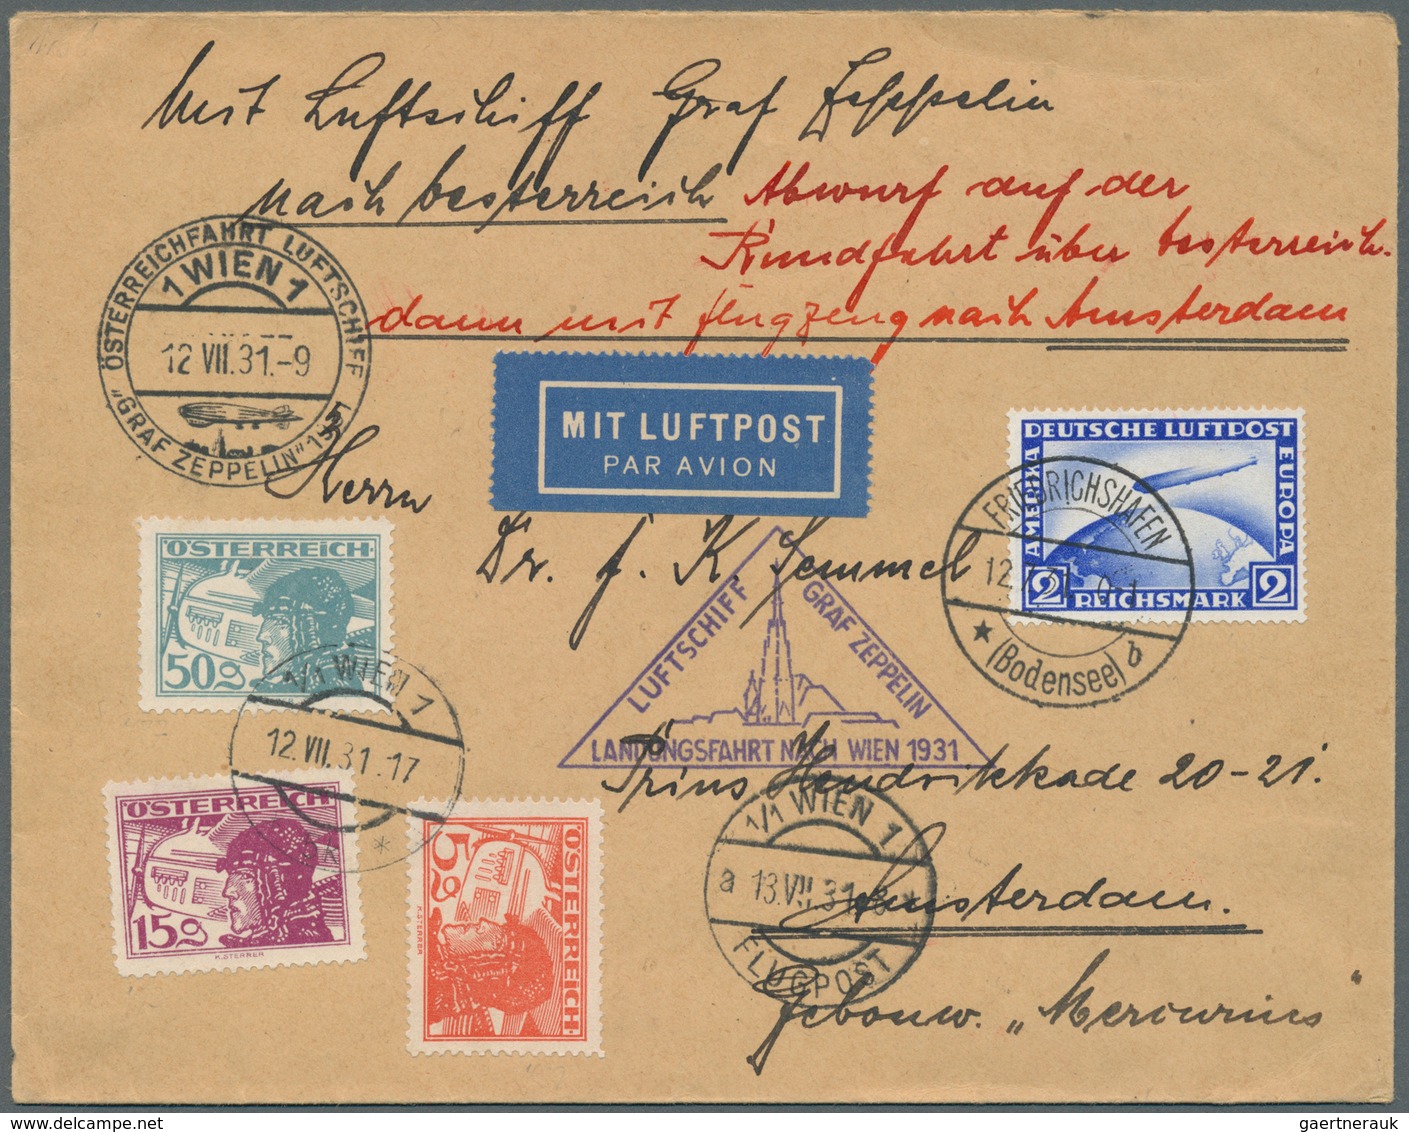 Mit Luftschiff Graf Zeppelin
nach Oesterreich Abwurf auf der
Rundfahrt über Oesterreich.
dann mit Flugzeug nach Amsterdam
ÖSTERREICHFAHRT LUFTSCHIFF
1 WIEN 1
12 VII.31.-9
„GRAF ZEPPELIN" 1931
MIT LUFTPOST
PAR AVION
DEUTSCHE LUFTPOST
AMERIKA
EUROPA
2 REICHSMARK 2
FRIEDRICHSHAFEN
12.7.31. 0-1
* (Bodensee) d
Herrn
Dr. J. K. Semmel
LUFTSCHIFF
GRAF ZEPPELIN
LANDUNGSFAHRT NACH WIEN 1931
ÖSTERREICH
50g
1/1 WIEN 1
12.VII.31.17
*
Prins Hendrikkade 20-21.
ÖSTERREICH
15g
K.STERRER
ÖSTERREICH
5g
K.STERRER
1/1 WIEN 1
a 13.VII.31 *
FLUGPOST
Amsterdam.
Gebouw. „Mercurius"
gaertnerauk